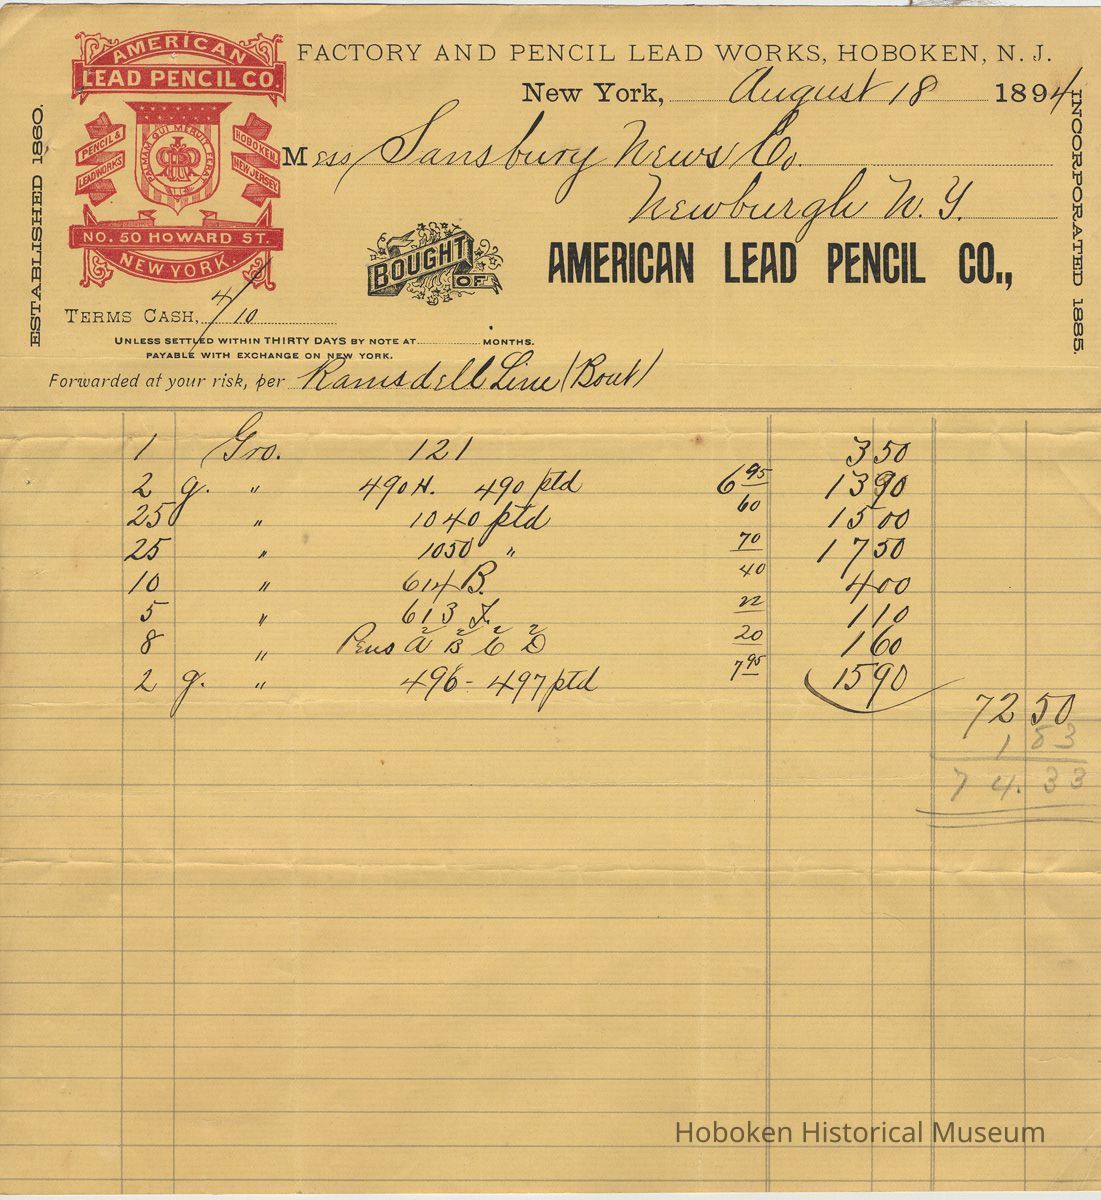 AMERICAN
LEAD PENCIL CO.
PENCIL & LEAD WORKS
HOBOKEN, NEW JERSEY.
PALMAM QUI MERUIT FERAT
NO. 50 HOWARD ST.
NEW YORK.
ESTABLISHED 1860.
INCORPORATED 1885.
FACTORY AND PENCIL LEAD WORKS, HOBOKEN, N. J.
New York, August 18 1894
Mess Sansbury News Co.
Newburgh N.Y.
BOUGHT OF AMERICAN LEAD PENCIL CO.,
TERMS CASH, 4/10
UNLESS SETTLED WITHIN THIRTY DAYS BY NOTE AT MONTHS.
PAYABLE WITH EXCHANGE ON NEW YORK.
Forwarded at your risk, per Ramsdell Line (Boat)
1 Gro. 121 3 50
2 g. " 490 H. 490 ptd 6 95 13 90
25 " 1040 ptd 60 15 00
25 " 1050 " 70 17 50
10 " 614 B. 40 4 00
5 " 613 22 1 10
8 " Pens A 2 B 2 C 2 D 2 20 1 60
2 g. " 496 - 497 ptd 7 95 15 90
72 50
1 83
74.33
Hoboken Historical Museum